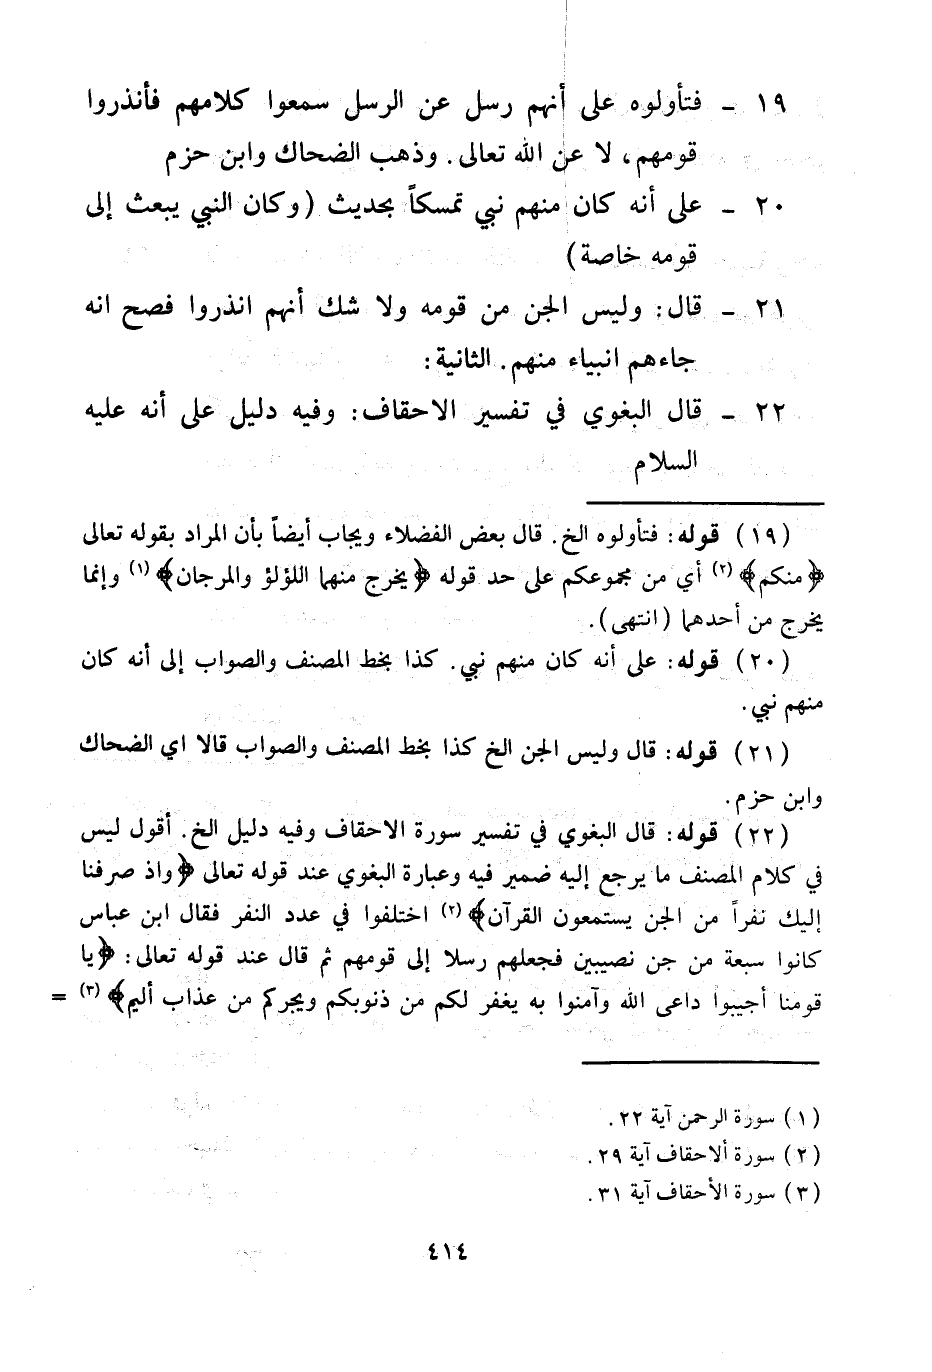 ١٩ - فتأولوه على أنهم رسل عن الرسل سمعوا كلامهم فأنذروا
قومهم، لا عن الله تعالى. وذهب الضحاك وابن حزم
٢٠ - على أنه كان منهم نبي تمسكاً بحديث (وكان النبي يبعث إلى
قومه خاصة)
٢١ - قال: وليس الجن من قومه ولا شك أنهم انذروا فصح انه
جاءهم انبياء منهم. الثانية:
٢٢ - قال البغوي في تفسير الاحقاف: وفيه دليل على أنه عليه
السلام
(١٩) قوله: فتأولوه الخ. قال بعض الفضلاء ويجاب أيضاً بأن المراد بقوله تعالى
﴿منكم﴾ (٢) أي من مجموعكم على حد قوله ﴿يخرج منهما اللؤلؤ والمرجان﴾ (١) وإنما
يخرج من أحدهما (انتهى).
(٢٠) قوله: على أنه كان منهم نبي. كذا بخط المصنف والصواب إلى أنه كان
منهم نبي.
(٢١) قوله: قال وليس الجن الخ كذا بخط المصنف والصواب قالا اي الضحاك
وابن حزم.
(٢٢) قوله: قال البغوي في تفسير سورة الاحقاف وفيه دليل الخ. أقول ليس
في كلام المصنف ما يرجع إليه ضمير فيه وعبارة البغوي عند قوله تعالى ﴿واذ صرفنا
إليك نفراً من الجن يستمعون القرآن﴾ (٢) اختلفوا في عدد النفر فقال ابن عباس
كانوا سبعة من جن نصيبين فجعلهم رسلا إلى قومهم ثم قال عند قوله تعالى: ﴿يا
قومنا أجيبوا داعى الله وآمنوا به يغفر لكم من ذنوبكم ويجركم من عذاب أليم﴾ (٣) =
(١) سورة الرحمن آية ٢٢.
(٢) سورة ألاحقاف آية ٢٩.
(٣) سورة الأحقاف آية ٣١.
٤١٤